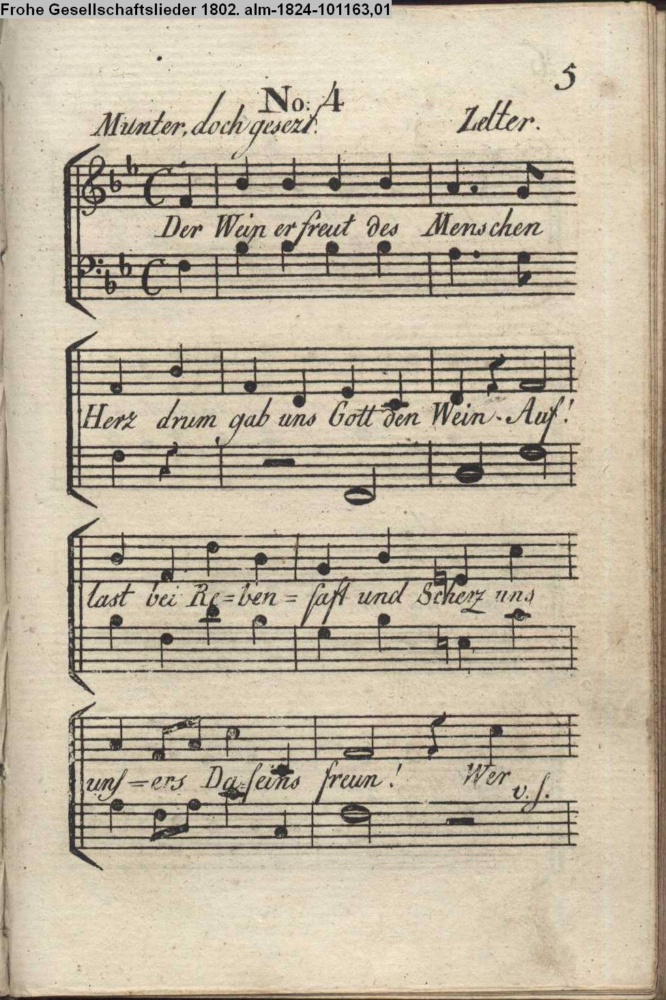 Frohe Gesellschaftslieder 1802. alm-1824-101163,01
5
No: 4
Munter, doch gesezt. Zelter.
Der Wein erfreut des Menschen
Herz drum gab uns Gott den Wein. Auf!
last bei Re=ben=saft und Scherz uns
uns=ers Daseins freun! Wer
v. s.